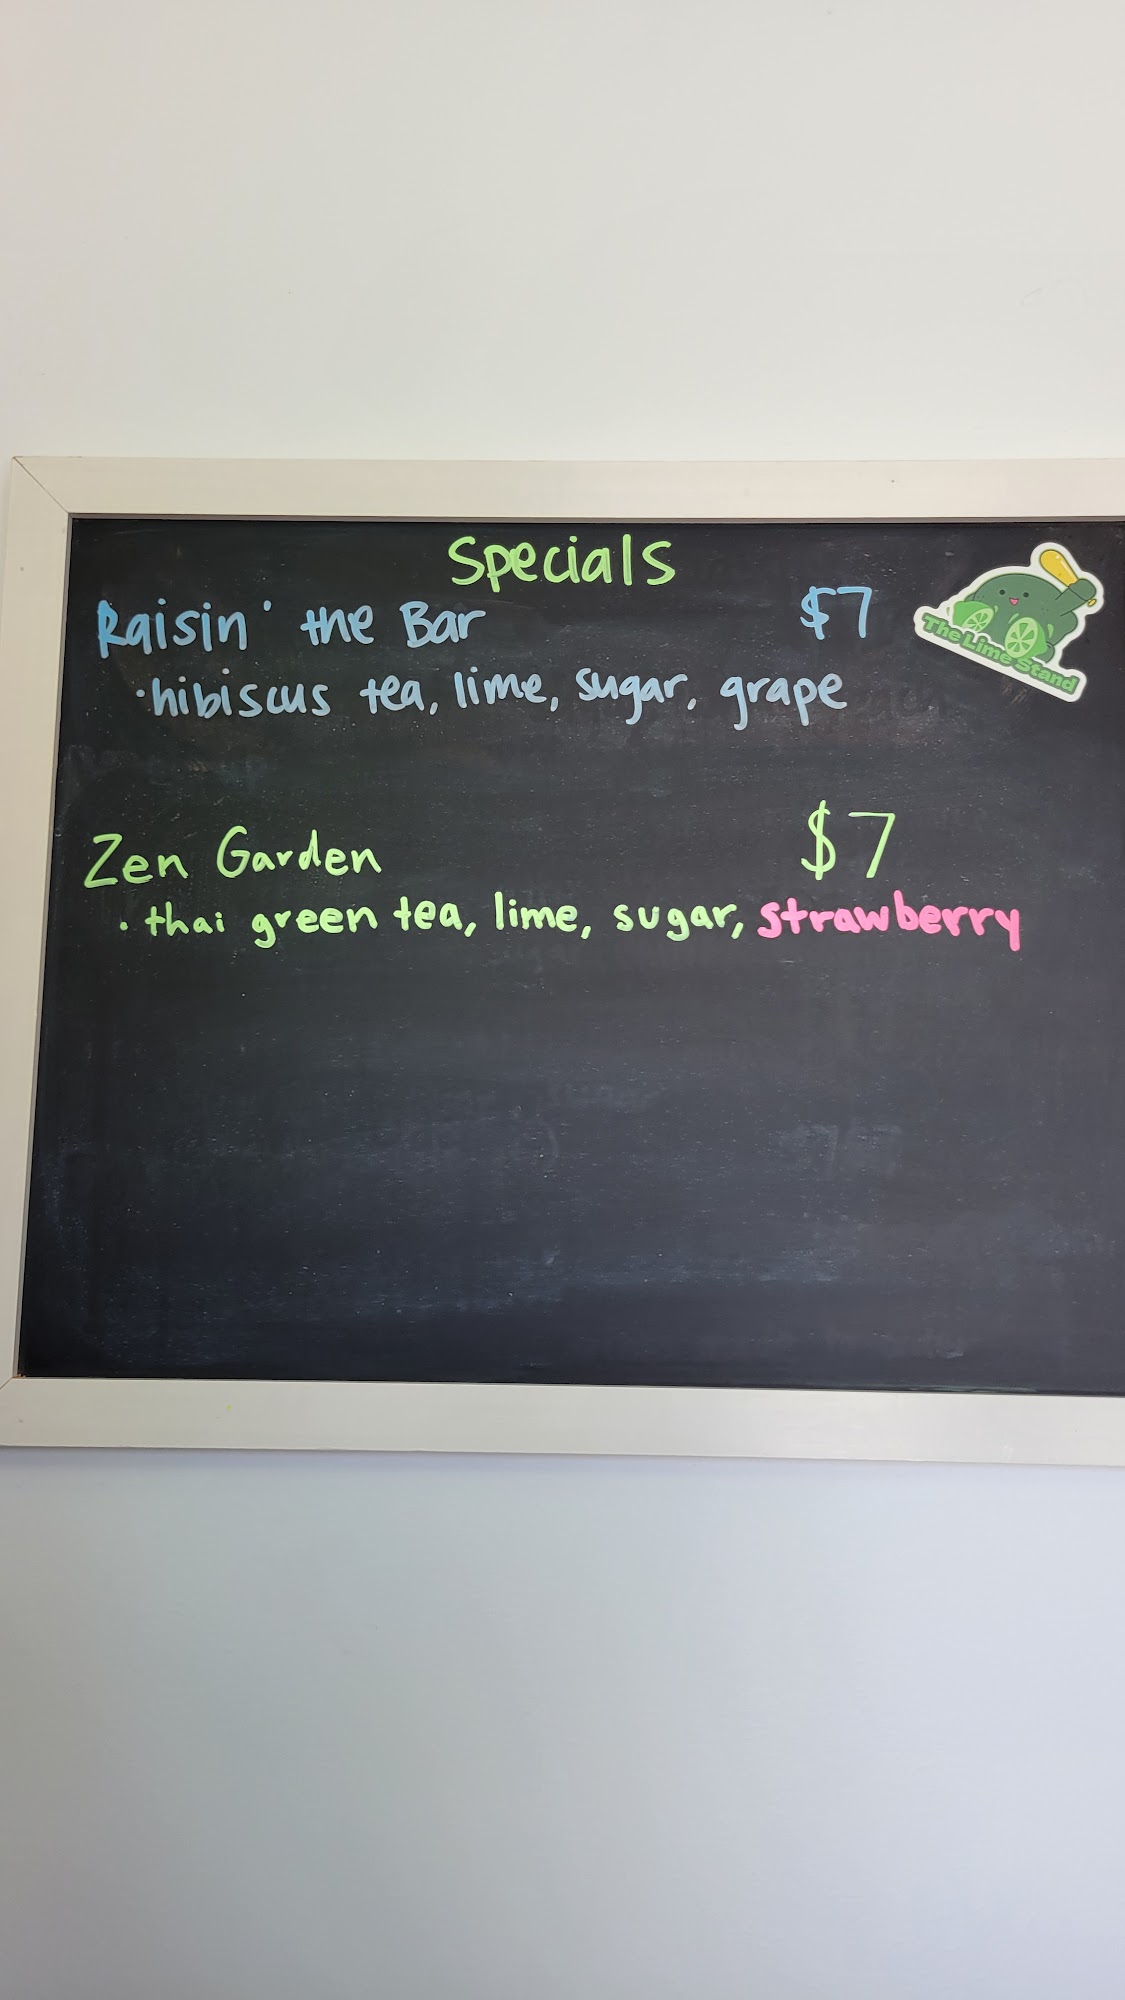 Specials
Raisin' the Bar $7
The Lime Stand
·hibiscus tea, lime, sugar, grape
Zen Garden $7
· thai green tea, lime, sugar, strawberry